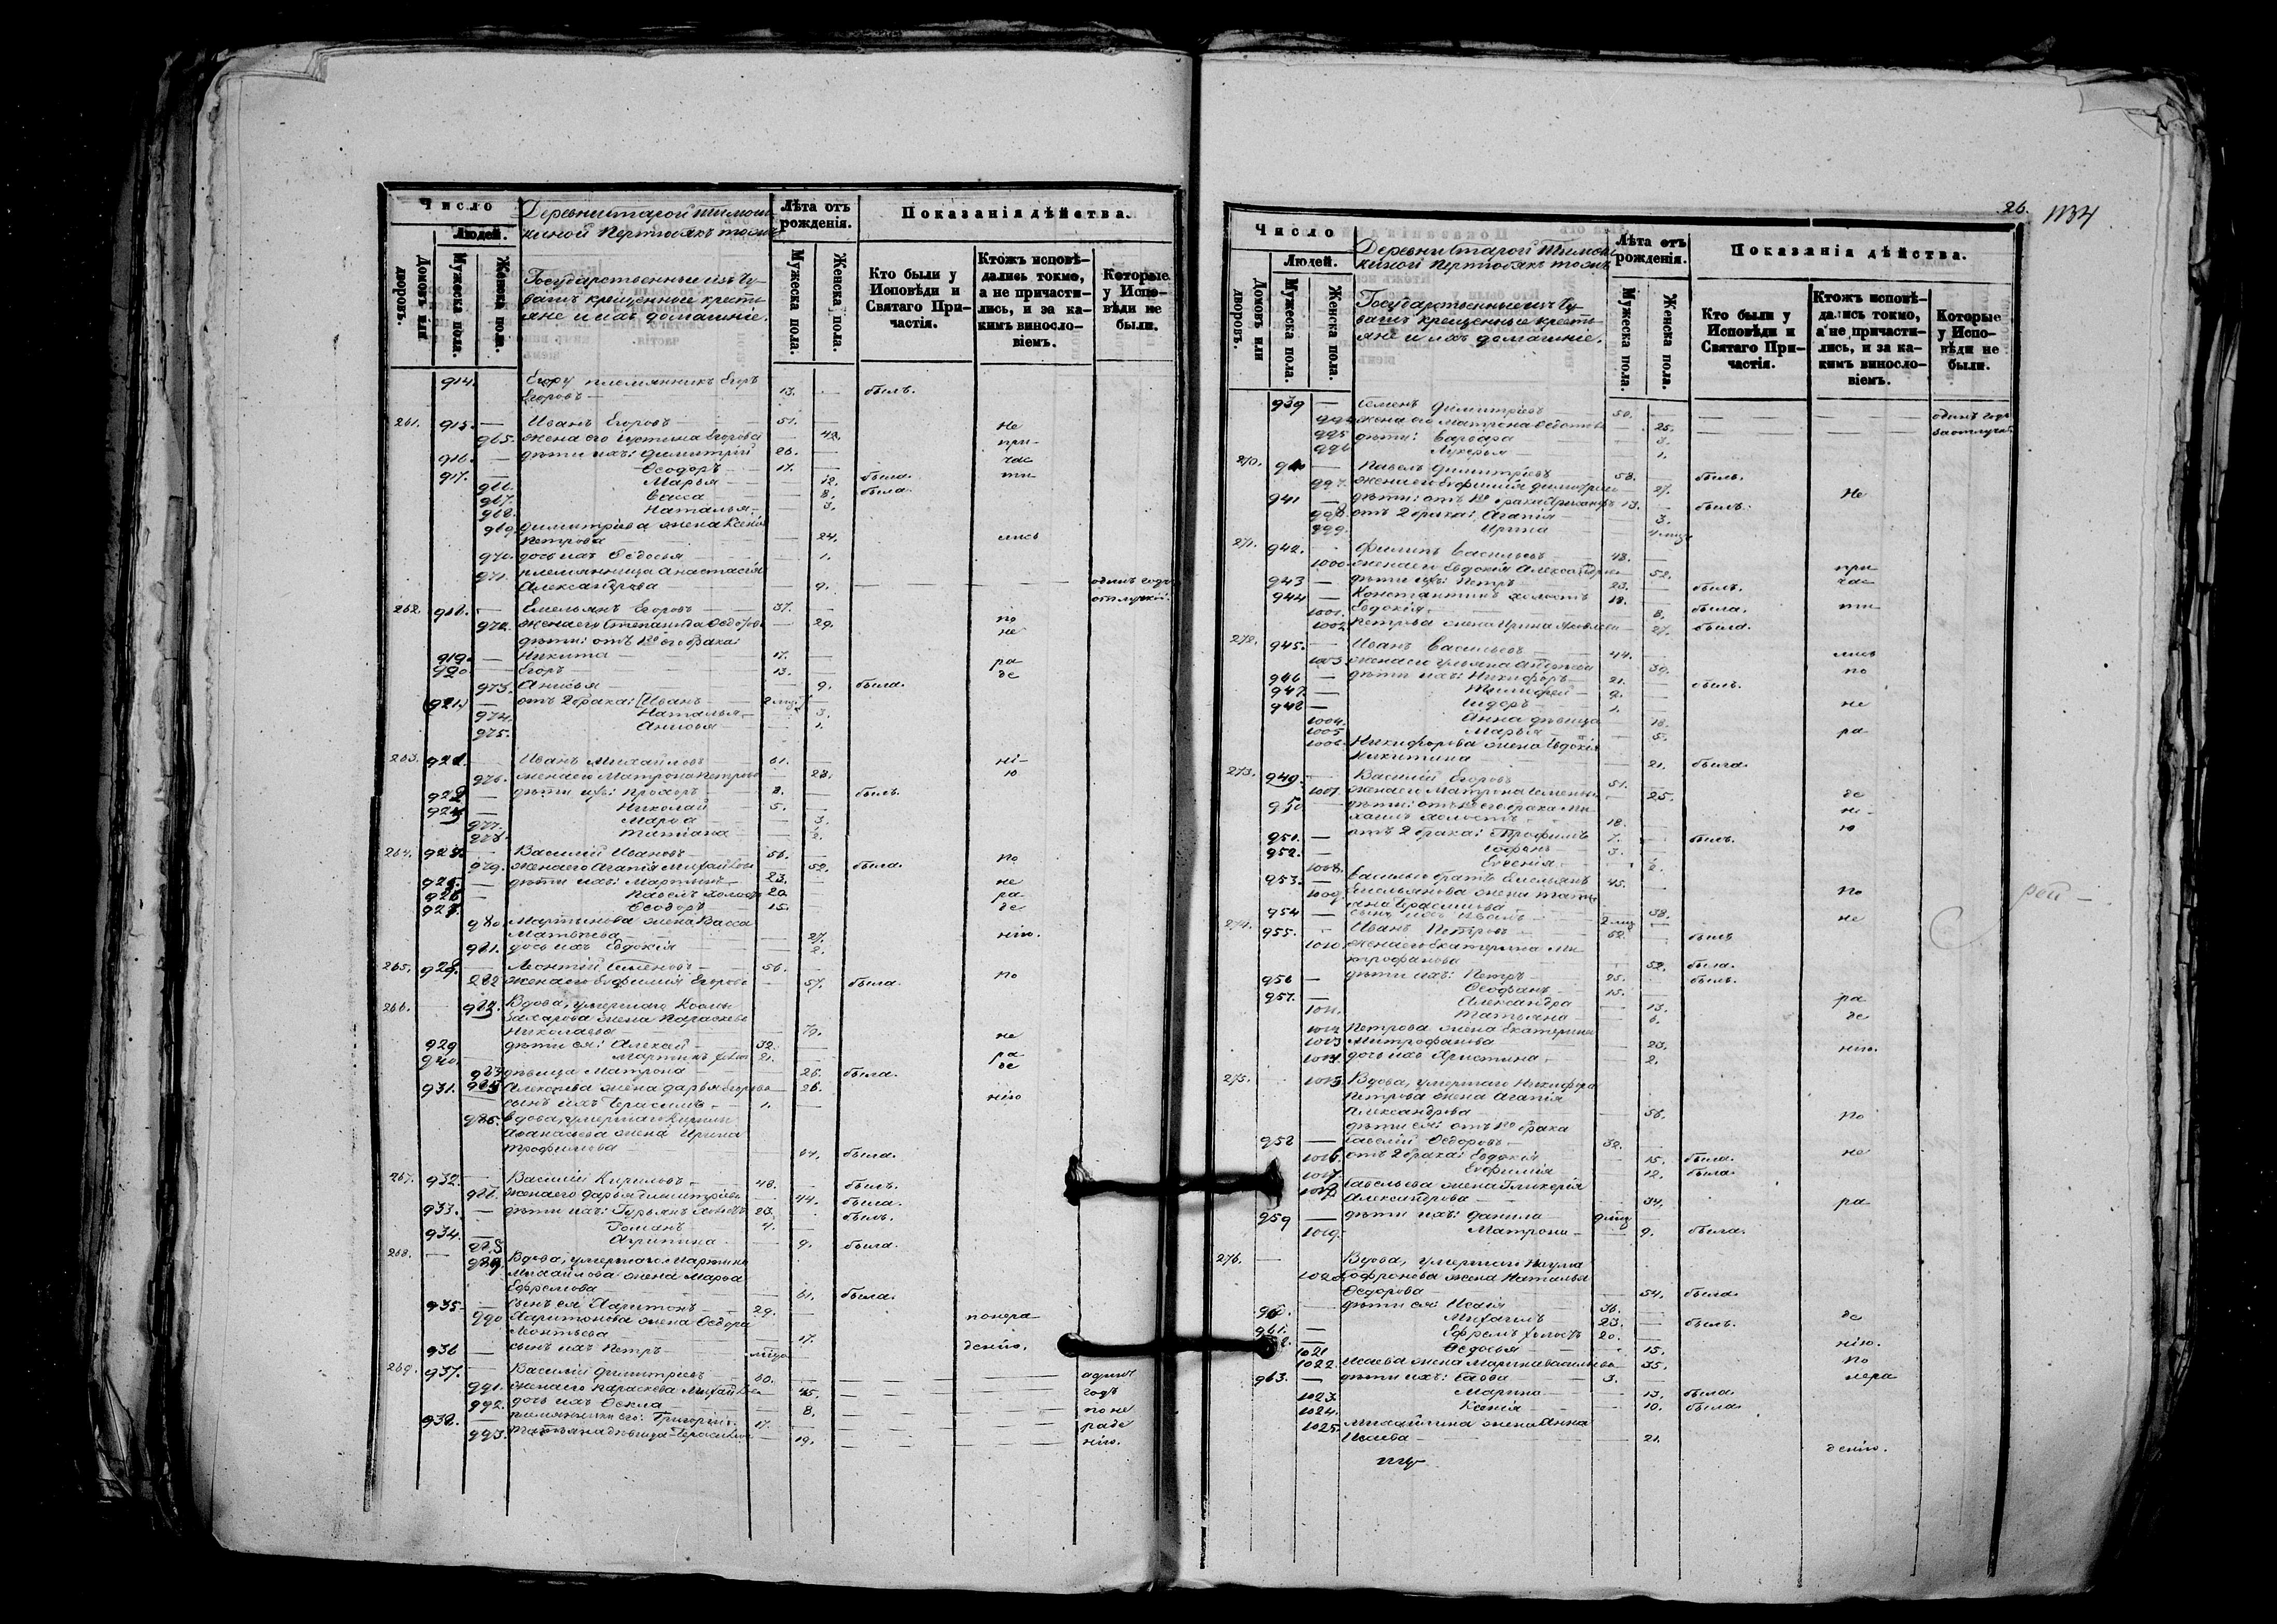 Число
Людей.
Домовъ или дворовъ.
Мужеска пола.
Женска пола.
Деревни старой Тимош-
киной Пертюбякъ тожъ
Государственные изъ Чу-
вашъ крещенные кресть-
яне и ихъ домашніе.
Лѣта отъ рожденія.
Мужеска пола.
Женска пола.
Показанія дѣйства.
Кто были у
Исповѣди и
Святаго При-
частія.
Ктожъ исповѣ-
дались токмо,
а не причасти-
лись, и за ка-
кимъ винosло-
віемъ.
Которые
у Испо-
вѣди не
были.
914. Егору племянникъ Егоръ
Егоровъ 13. былъ.
261. 915. Иванъ Егоровъ 51. не
965. жена его Устина Егорова 42. при-
916. дѣти ихъ: Димитрій 26. час
917. Ѳеодоръ 17. ти
966. Марья 12. была.
967. Васса 8. была.
968. Наталья 3.
969. Димитріева жена Ксенія
Петрова 24. лись
970. дочь ихъ Ѳедосья 1.
971. племянница Анастасія
Александрова 9. одинъ годъ
262. 918. Емельянъ Егоровъ 37.
972. жена его Степанида Ѳедорова 29. по
дѣти: отъ 1го его брака: не
919. Никита 17.
920. Егоръ 13. ра
973. Анисья 9. была. де
921. отъ 2 брака: Иванъ
974. Наталья 3.
975. Анисья 1.
263. 922. Иванъ Михайловъ 61. ні-
976. жена его Матрона Петрова 28. ю
дѣти ихъ: Прохоръ 8. былъ.
Николай 5.
977. Марѳа 3.
978. Татіана
264. Василій Ивановъ 56. по
979. жена его Агапія Михайлова 52. была.
дѣти ихъ: Мартинъ 23. не
Павелъ холостъ 20. ра
Ѳеодоръ 15. де
980. Мартынова жена Васса
Матвѣева 27. нію.
981. дочь ихъ Евдокія 2.
265. Леонтій Семеновъ 56. по
982 жена его Евфимія Егорова 57. была.
266. Вдова, умершаго Козмы
Захарова жена Параскева
Николаева не
929 дѣти ея: Алексѣй 32.
930. Мартинъ 21. ра
дѣвица Матрона 26. была. де
931. Алексѣева жена Дарья Егорова 26.
сынъ ихъ Герасимъ 1. нію
986. вдова, умершаго Кирилы
Аѳанасьева жена Ирина
Трофимова 64. была.
267. 932. Василій Кириловъ 48. былъ.
жена его Дарья Димитріева 44. была.
933. дѣти ихъ: Гурьянъ 23. былъ.
934. Романъ 4.
Агрипина 9. была.
268. Вдова, умершаго Мартина
Михайлова жена Марѳа
Ефремова 61. была.
935. сынъ ея Харитонъ 29.
990 Харитонова жена Ѳедора понера-
Леонтьева 17.
936 сынъ ихъ Петръ денію.
269. 937. Василій Димитріевъ 60. одинъ
991. жена его Параскева Михайлова 45. годъ
992. дочь ихъ Ѳекла 8. по не
938. племянники его: Григорій 17. раде
993. Татьяна дѣвица 19. нію.
26. 1134
Число
Людей.
Домовъ или дворовъ.
Мужеска пола.
Женска пола.
Деревни старой Тимош-
киной Пертюбякъ тожъ
Государственные изъ Чу-
вашъ крещенные кресть-
яне и ихъ домашніе.
Лѣта отъ рожденія.
Мужеска пола.
Женска пола.
Показанія дѣйства.
Кто были у
Исповѣди и
Святаго При-
частія.
Ктожъ исповѣ-
дались токмо,
а не причасти-
лись, и за ка-
кимъ винosло-
віемъ.
Которые
у Испо-
вѣди не
были.
939 Семенъ Димитріевъ 50. одинъ годъ
жена его Матрона 25. за отлучк.
995 дѣти: Варвара 3.
Лукерья 1.
270. 940 Павелъ Димитріевъ 58. былъ.
997. жена его Евфимія Димитріева 27. Не
941 дѣти: отъ 1го брака 13. былъ.
998. отъ 2 брака: Агапія 3.
999. Ирина
271. 942. Филипъ Васильевъ 48.
1000. жена его Евдокія Александрова 52. при
943 дѣти ихъ: Петръ 23. былъ. час
944 Константинъ холостъ 18.
1001. Евдокія 8. была. ти
1002 Петрова жена Ирина Яковлева 27. была.
272. 945. Иванъ Васильевъ 44. лись
1003 жена его Ульяна Андреева 39. по
946 дѣти ихъ: Никифоръ 21. былъ.
947 Тимофей 9.
948 Сидоръ 1. не
1004. Анна дѣвица 18.
1005 Марья 5. ра
1006. Никифорова жена Евдокія
Никитина 21. была.
273. 949. Василій Егоровъ 51.
1007. жена его Матрона Семенова 25. де
950 дѣти: отъ 1го его брака Ми- ні-
хаилъ холостъ 18. ю
951. отъ 2 брака: Трофимъ 7. былъ.
952. Софронъ 3.
1008. Евгенія
953. Васильевъ братъ Емельянъ 45.
1009. Емельянова жена Татья- По
на Герасимова 38.
954 сынъ ихъ Иванъ не
274. 955. Иванъ Петровъ 62. былъ
1010. жена его Екатерина Ми-
трофанова 52. была.
956 дѣти ихъ: Петръ 25. былъ.
957. Ѳеофанъ 15. ра
1011. Александра 13.
Татьяна 6. де
Петрова жена Екатерина
Митрофанова 23. нію.
дочь ихъ Христина 2.
275. Вдова, умершаго Никифора
Петрова жена Агапія
Александрова 56. по
дѣти ея: отъ 1го брака
958 Савелій Ѳедоровъ 32. не
1016. отъ 2 брака: Евдокія 15. была.
1017 Евфимія 12. была.
Савельева жена Гликерія
Александрова 34. ра
959 дѣти ихъ: Данила
1019. Матрона 9. была.
276. Вдова, умершаго Наума
Софронова жена Наталья
Ѳедорова 54. была.
960. дѣти ея: Исаія 36. де
961. Михаилъ 23. былъ.
Ефремъ холостъ 20. нію.
1021 Ѳедосья 15. по
1022. Исаева жена Марина Васильева 35. нера
963. дѣти ихъ: Савва 3.
1023. Марина 13. была.
1024. Ксенія 10. была.
1025. Михайлина жена Анна
Исаева 21. денію.